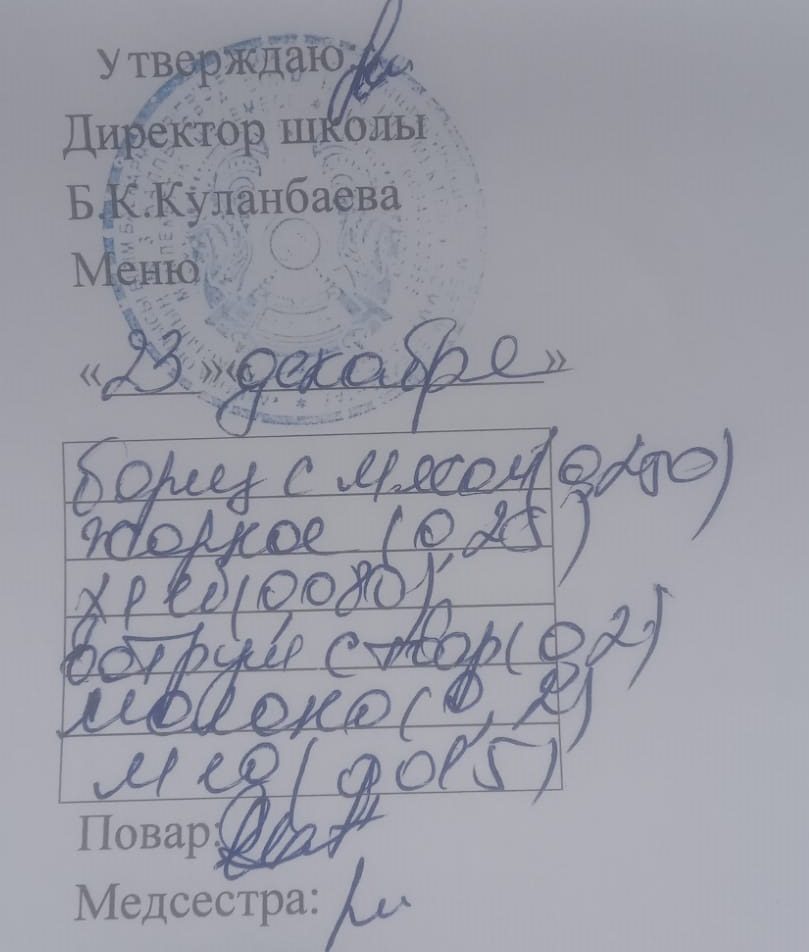 Утверждаю:
Директор школы
Б.К.Куланбаева
Меню
«23»« декабре »
борщ с мясом (0,250)
жаркое (0,25)
хлеб (0,080)
с твор (0,2)
молоко (0,2)
мёд (0,015)
Повар:
Медсестра: